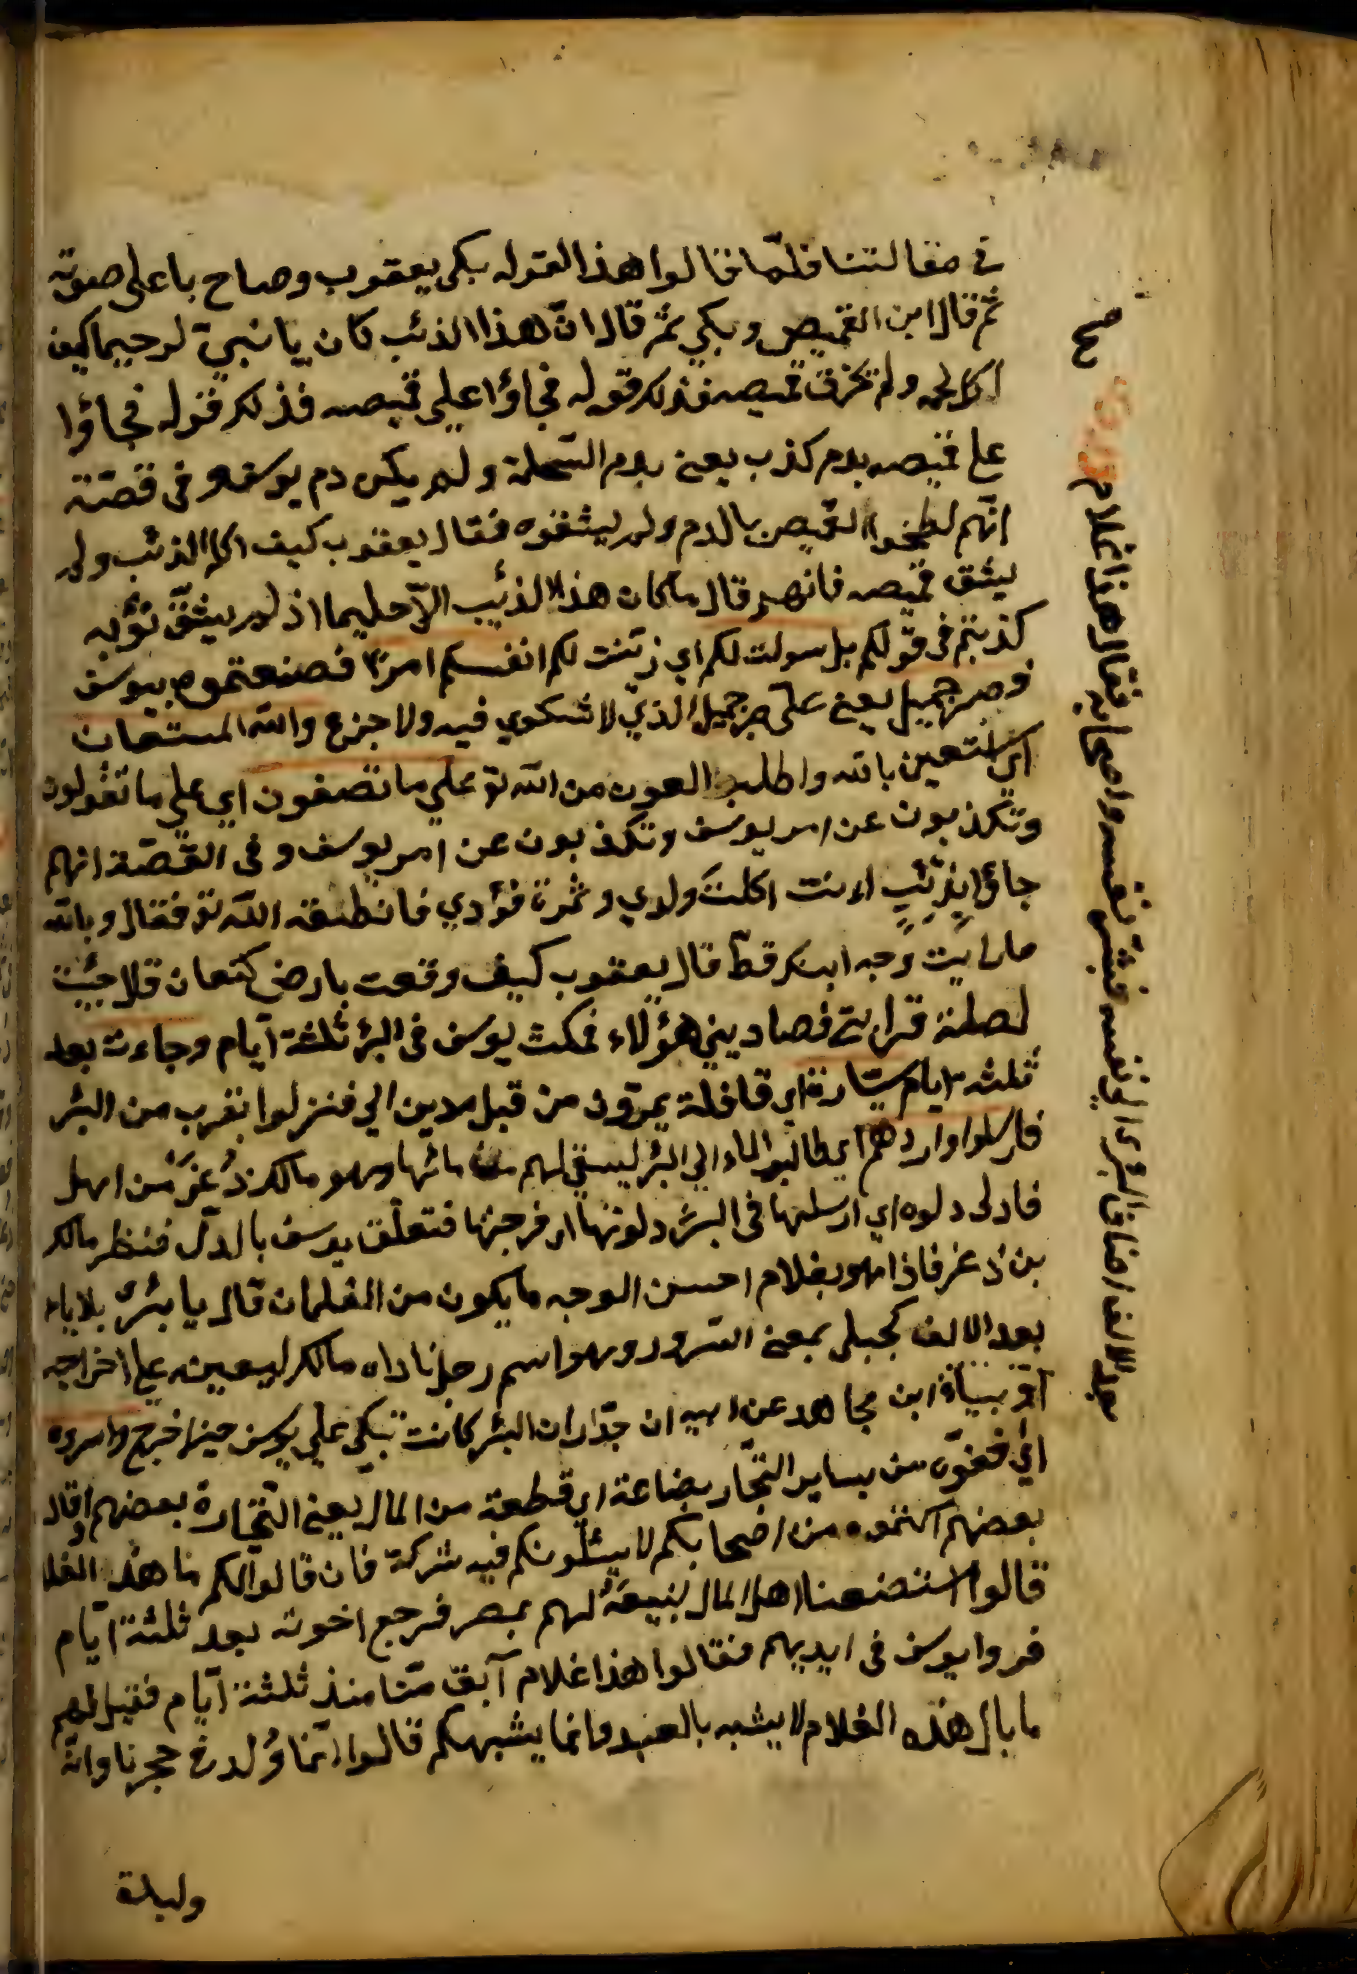 في مقالتنا فلمّا قالوا هذا القول بكى يعقوب وصاح باعلى صوته
ثم قال اين القميص وبكى ثمّ قال انّ هذا الذئب كان يا نبيّ لرحيما كيف
اكل لحمه ولم تخرق قميصه فذلك قوله فجاؤا على قميصه فذلك قوله فجاؤا
على قميصه بدم كذب يعنى بدم السّخلة ولم يكن دم يوسف وفى قصّة
انّهم لطخوا القميص بالدم ولم يشقوه فقال يعقوب كيف اكله الذئب ولم
يشق قميصه فاتهمهم قال ما كان هذا الذئب الّا حليما اذ لم يشقّ ثوبه
كذبتم فى قولكم بل سولت لكم اي زيّنت لكم انفسكم امرًا فصنعتموه بيوسف
فصبر جميل يعنى علىّ صبر جميل الذي لا شكوي فيه ولا جزع والله المستعان
اي استعين بالله واطلب العون من الله تع على ما تصفون اي على ما تقولون
وتكذبون عن امر يوسف وتكذبون عن امر يوسف وفى القصّة انهم
جاؤا بذئب اءنت اكلت ولدي وثمرة فؤدي فانطقه الله تع فقال وبالله
ما رايت وجه ابنك قطّ قال يعقوب كيف وقعت بارض كنعان قال جئت
لصلة قرابتى فصادنى هؤلاء فمكث يوسف فى البئر ثلثة ايّام وجاءت بعد
ثلثة ايام سيّارة اي قافلة يمرّون من قبل مدين الي فنزلوا بقرب من البئر
فارسلوا واردهم اي طالب الماء الي البئر ليستقى لهم من مائها وهو مالك ذُعْر من اهل
فادلى دلوه اي ارسلها فى البئر دلوتها اى فرجتها فتعلّق يوسف بالدلو فنظر مالك
بن ذعر فاذا هو بغلام احسن الوجه ما يكون من الغلمان قال يا بشرى بلا ياء
بعد الالف كحبلى بمعنى السّرور وهو اسم رجل ناداه مالك ليعينه على اخراجه
ابن مجاهد عن ابيه ان جدّران البئر كانت تبكى على يوسف حين اخرج واسروه
اي فخفوه من ساير التجّار بضاعة اي قطعة من المال يعنى التّجّارة بعضهم وقال
بعضهم اكتموه من اصحابكم لا يسئلونكم فيه شركة فان قالوا لكم ما هذا الغلا
قالوا استبضعنا اهل المال لنبيعه لهم بمصر فرجع اخوته بعد ثلثة ايّام
فروا يوسف فى ايديهم فقالوا هذا غلام آبق منّا منذ ثلثة ايّام فقيل لهم
ما بال هذه الغلام لا يشبه بالعبد وانما يشبهكم قالوا انّما ولد فى حجرنا وانّه
وليدة
هذا غلام فقال هذا واصحابه فبشّر نفسه البشرى الى نفسه اضاف الالف بعد